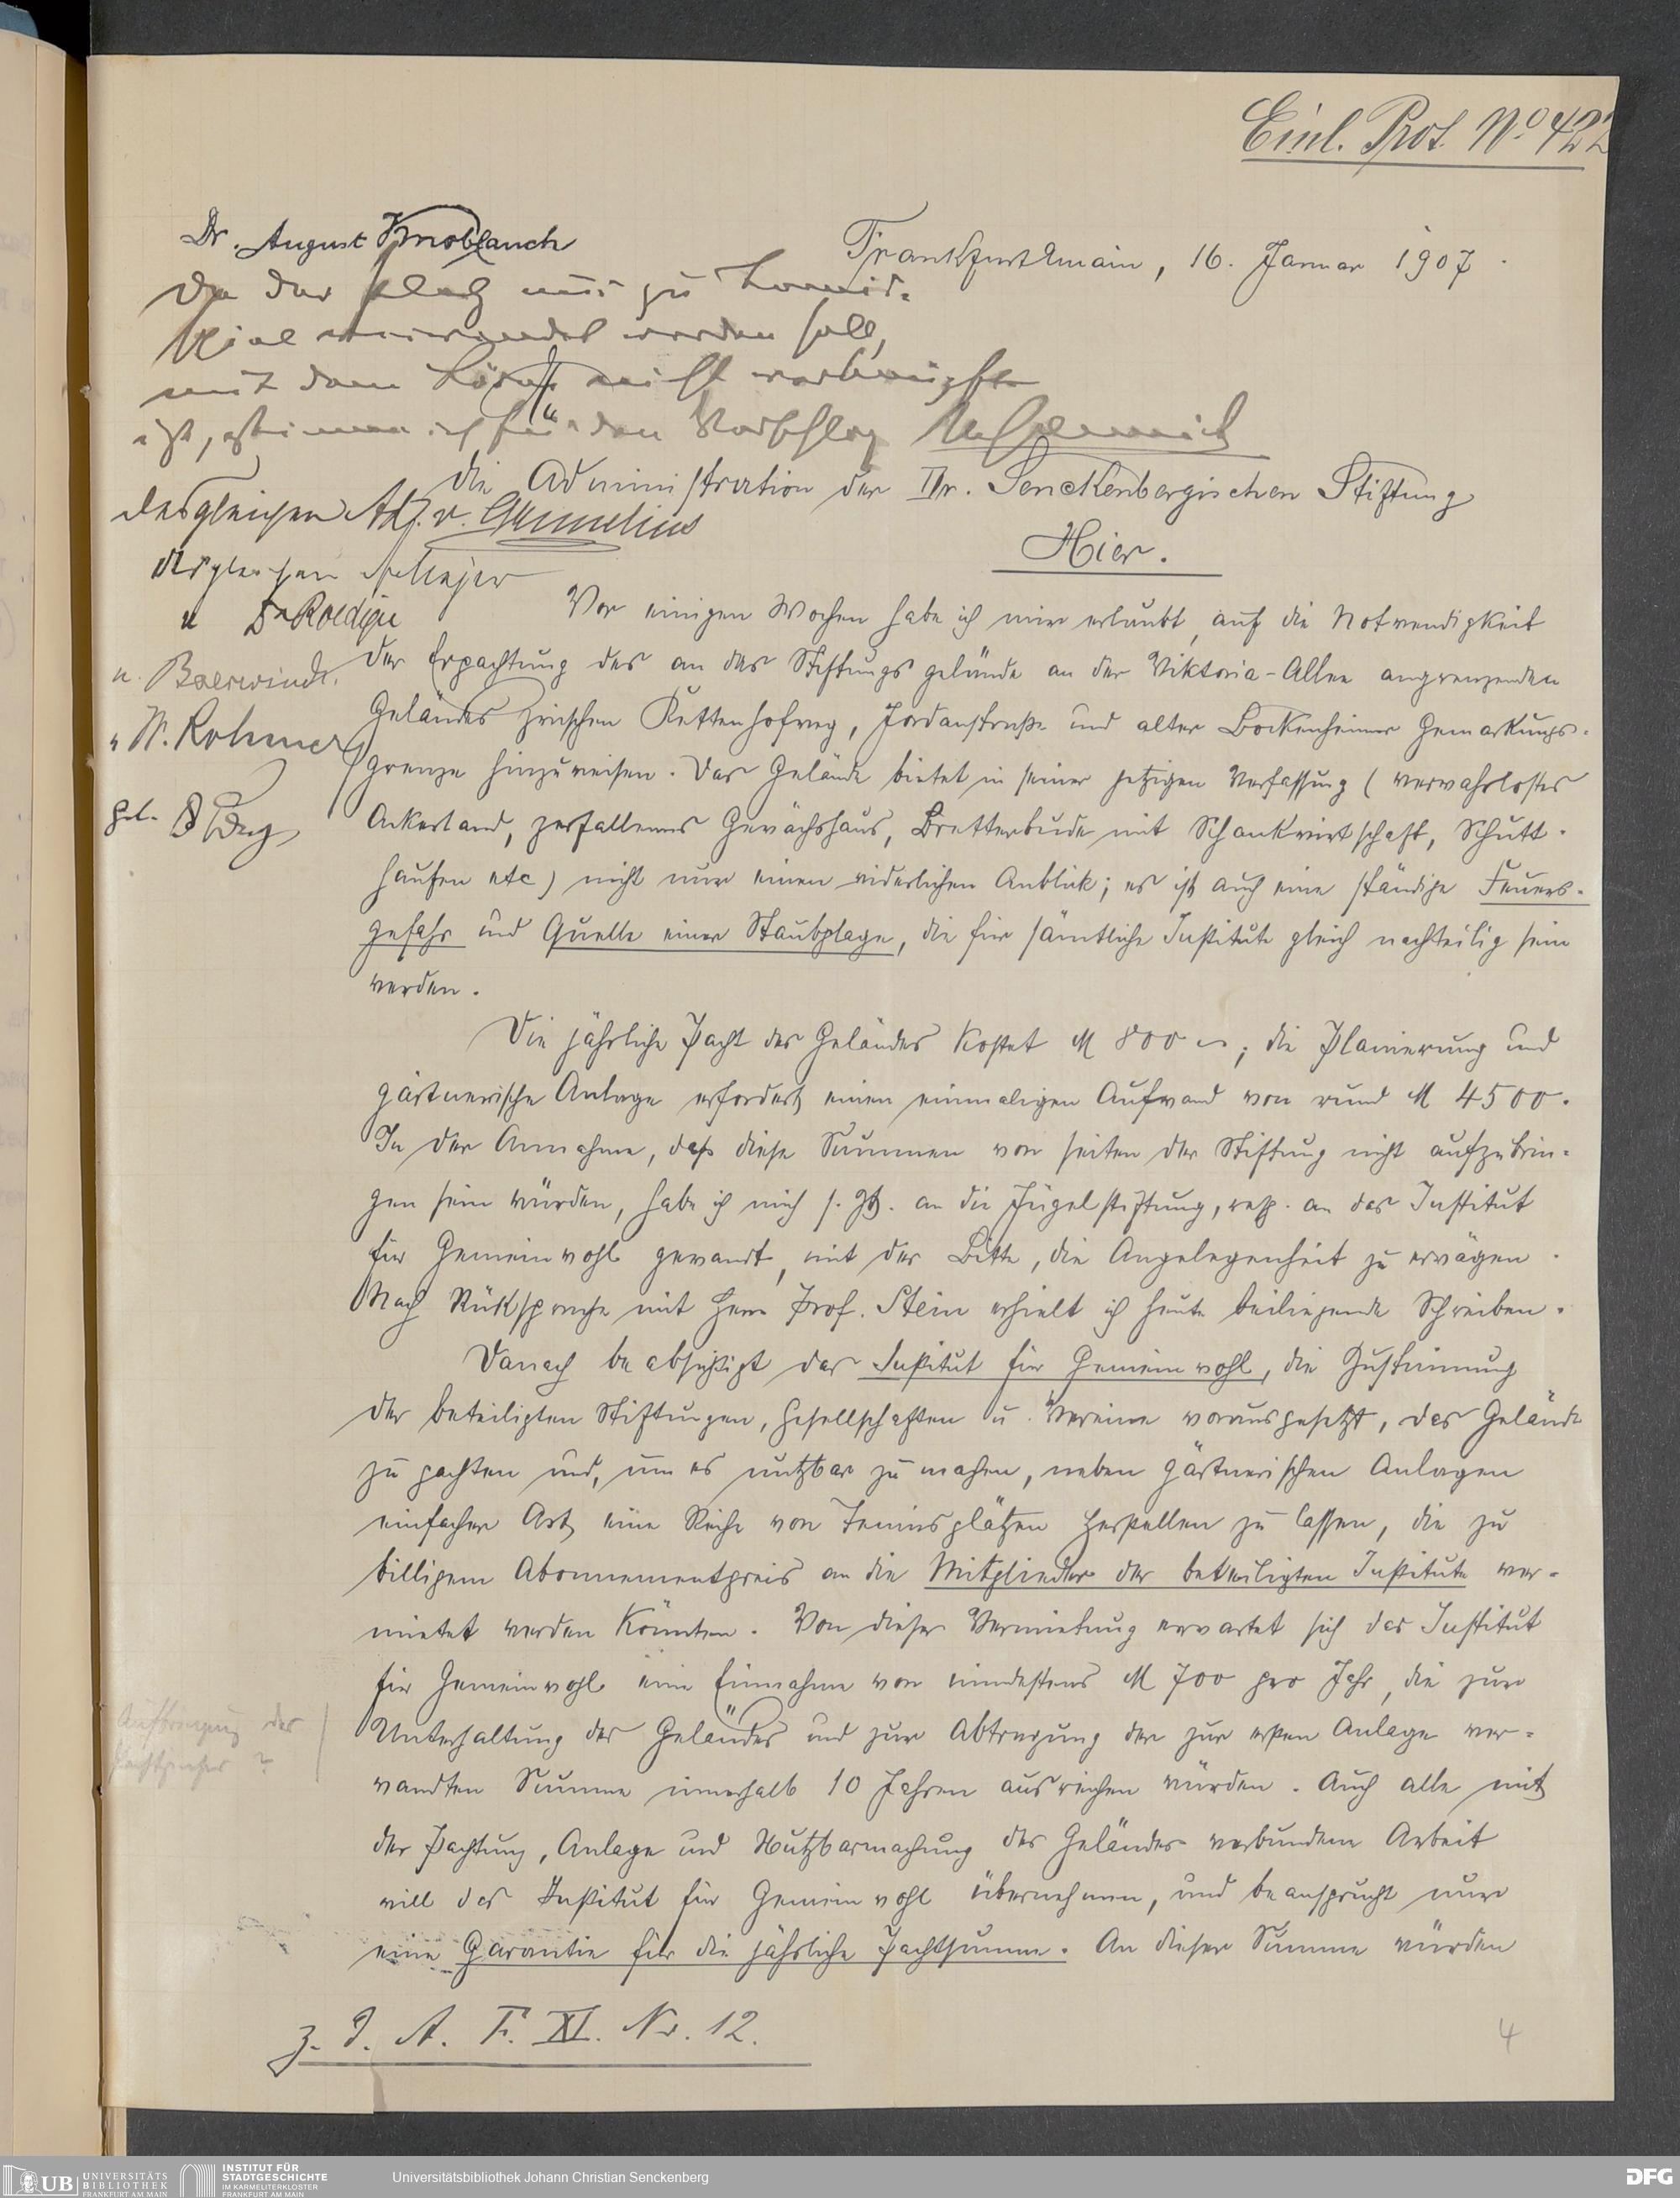 Einl. Prot. No 422
Dr. August Knoblauch
Frankfurt a/main, 16. Januar 1907.
Da der Platz nur zu Tennis-
spiel verwendet werden soll,
mit dem Lärm nicht verknüpft
ist, stimme ich für den Vorschlag
die Administration der Dr. Senckenbergischen Stiftung
Hier.
desgleichen Adf. v. Grunelius
desgleichen
" Dr Roediger
" Baerwindt
" W. Rohmer
gel.
Vor einigen Wochen habe ich mir erlaubt, auf die Notwendigkeit
der Erpachtung des an das Stiftungsgelände an der Viktoria-Allee angrenzenden
Geländes zwischen Kettenhofweg, Jordanstraße und alter Bockenheimer Gemarkungs-
grenze hinzuweisen. Das Gelände bietet in seiner jetzigen Verfassung (verwahrlostes
Ackerland, zerfallenes Gewächshaus, Bretterbude mit Schankwirtschaft, Schutt-
haufen etc) nicht nur einen widerlichen Anblick; es ist auch eine ständige Feuers-
gefahr und Quelle einer Staubplage, die für sämtliche Institute gleich nachteilig sein
werden.
Die jährliche Pacht des Geländes kostet M 800 ; die Planierung und
gärtnerische Anlage erfordert einen einmaligen Aufwand von rund M 4500.
In der Annahme, daß diese Summen von seiten der Stiftung nicht aufzubrin-
gen sein würden, habe ich mich s. Zt. an die Jügelstiftung, resp. an das Institut
für Gemeinwohl gewandt, mit der Bitte, die Angelegenheit zu erwägen.
Nach Rüksprache mit Herrn Prof. Stein erhielt ich heute beiliegende Schreiben.
Danach beabsichtigt das Institut für Gemeinwohl, die Zustimmung
der beteiligten Stiftungen, Gesellschaften u. Vereine vorausgesetzt, das Gelände
zu pachten und, um es nutzbar zu machen, neben gärtnerischen Anlagen
einfacher Art, eine Reihe von Tennisplätzen herstellen zu lassen, die zu
billigem Abonnementpreis an die Mitglieder der beteiligten Institute ver-
mietet werden könnten. Von dieser Vermietung erwartet sich das Institut
für Gemeinwohl eine Einnahme von mindestens M 700 pro Jahr, die zur
Unterhaltung des Geländes und zur Abtragung der zur ersten Anlage ver-
wandten Summe innerhalb 10 Jahren ausreichen würden. Auch alle mit
der Pachtung, Anlage und Nutzbarmachung des Geländes verbundene Arbeit
will das Institut für Gemeinwohl übernehmen, und beansprucht nur
eine Garantie für die jährliche Pachtsumme. An dieser Summe würden
Aufbringung des
Pachtzinses ?
z. d. A. F. XI. Nr. 12.
4
UB UNIVERSITÄTS
BIBLIOTHEK
FRANKFURT AM MAIN
INSTITUT FÜR
STADTGESCHICHTE
IM KARMELITERKLOSTER
FRANKFURT AM MAIN
Universitätsbibliothek Johann Christian Senckenberg
DFG